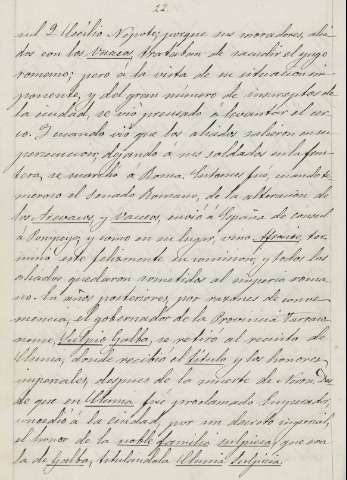 22
sul Q. Cecilio Nepote; porque sus moradores, alia-
dos con los Vacceos, trataban de sacudir el yugo
romano; pero á la vista de su situacion im-
ponente, y del gran número de insurrectos de
la ciudad, se vió precisado á levantar el cer-
co. Y cuando vió que los aliados salieron en su
persecucion, dejando á sus soldados en la fron-
tera, se marchó a Roma. Entonces fué, cuando te-
meroso el Senado Romano, de la alteración de
los Arevacos, y Vacceos, envió á España de consul
á Pompeyo, y como en su lugar, vino Afranio, ter-
minó este felizmente su comision, y todos los
aliados quedaron sometidos al imperio roma-
no. En años posteriores, por razones de conve-
niencia, el gobernador de la Provincia Tarraco-
nense, Sulpicio Galba, se retiró al recinto de
Clunia, donde recibió el título y los honores
imperiales, despues de la muerte de Neron. Des
de que en Clunia fué proclamado Emperador,
concedió á la ciudad, por un decreto imperial,
el honor de la noble familia sulpicia, que era
la de Galba, titulándola Clunia Sulpicia